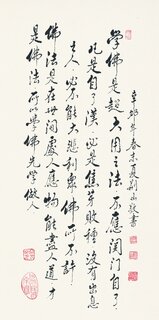 學佛是超大因之法不應閉門自了
凡是自了漢必是焦芽敗種沒有出息
之人必不能大悲利眾佛所不許
佛法是在世間處人應物能盡人道才
是佛法所以學佛先學做人
辛卯年春末夏書